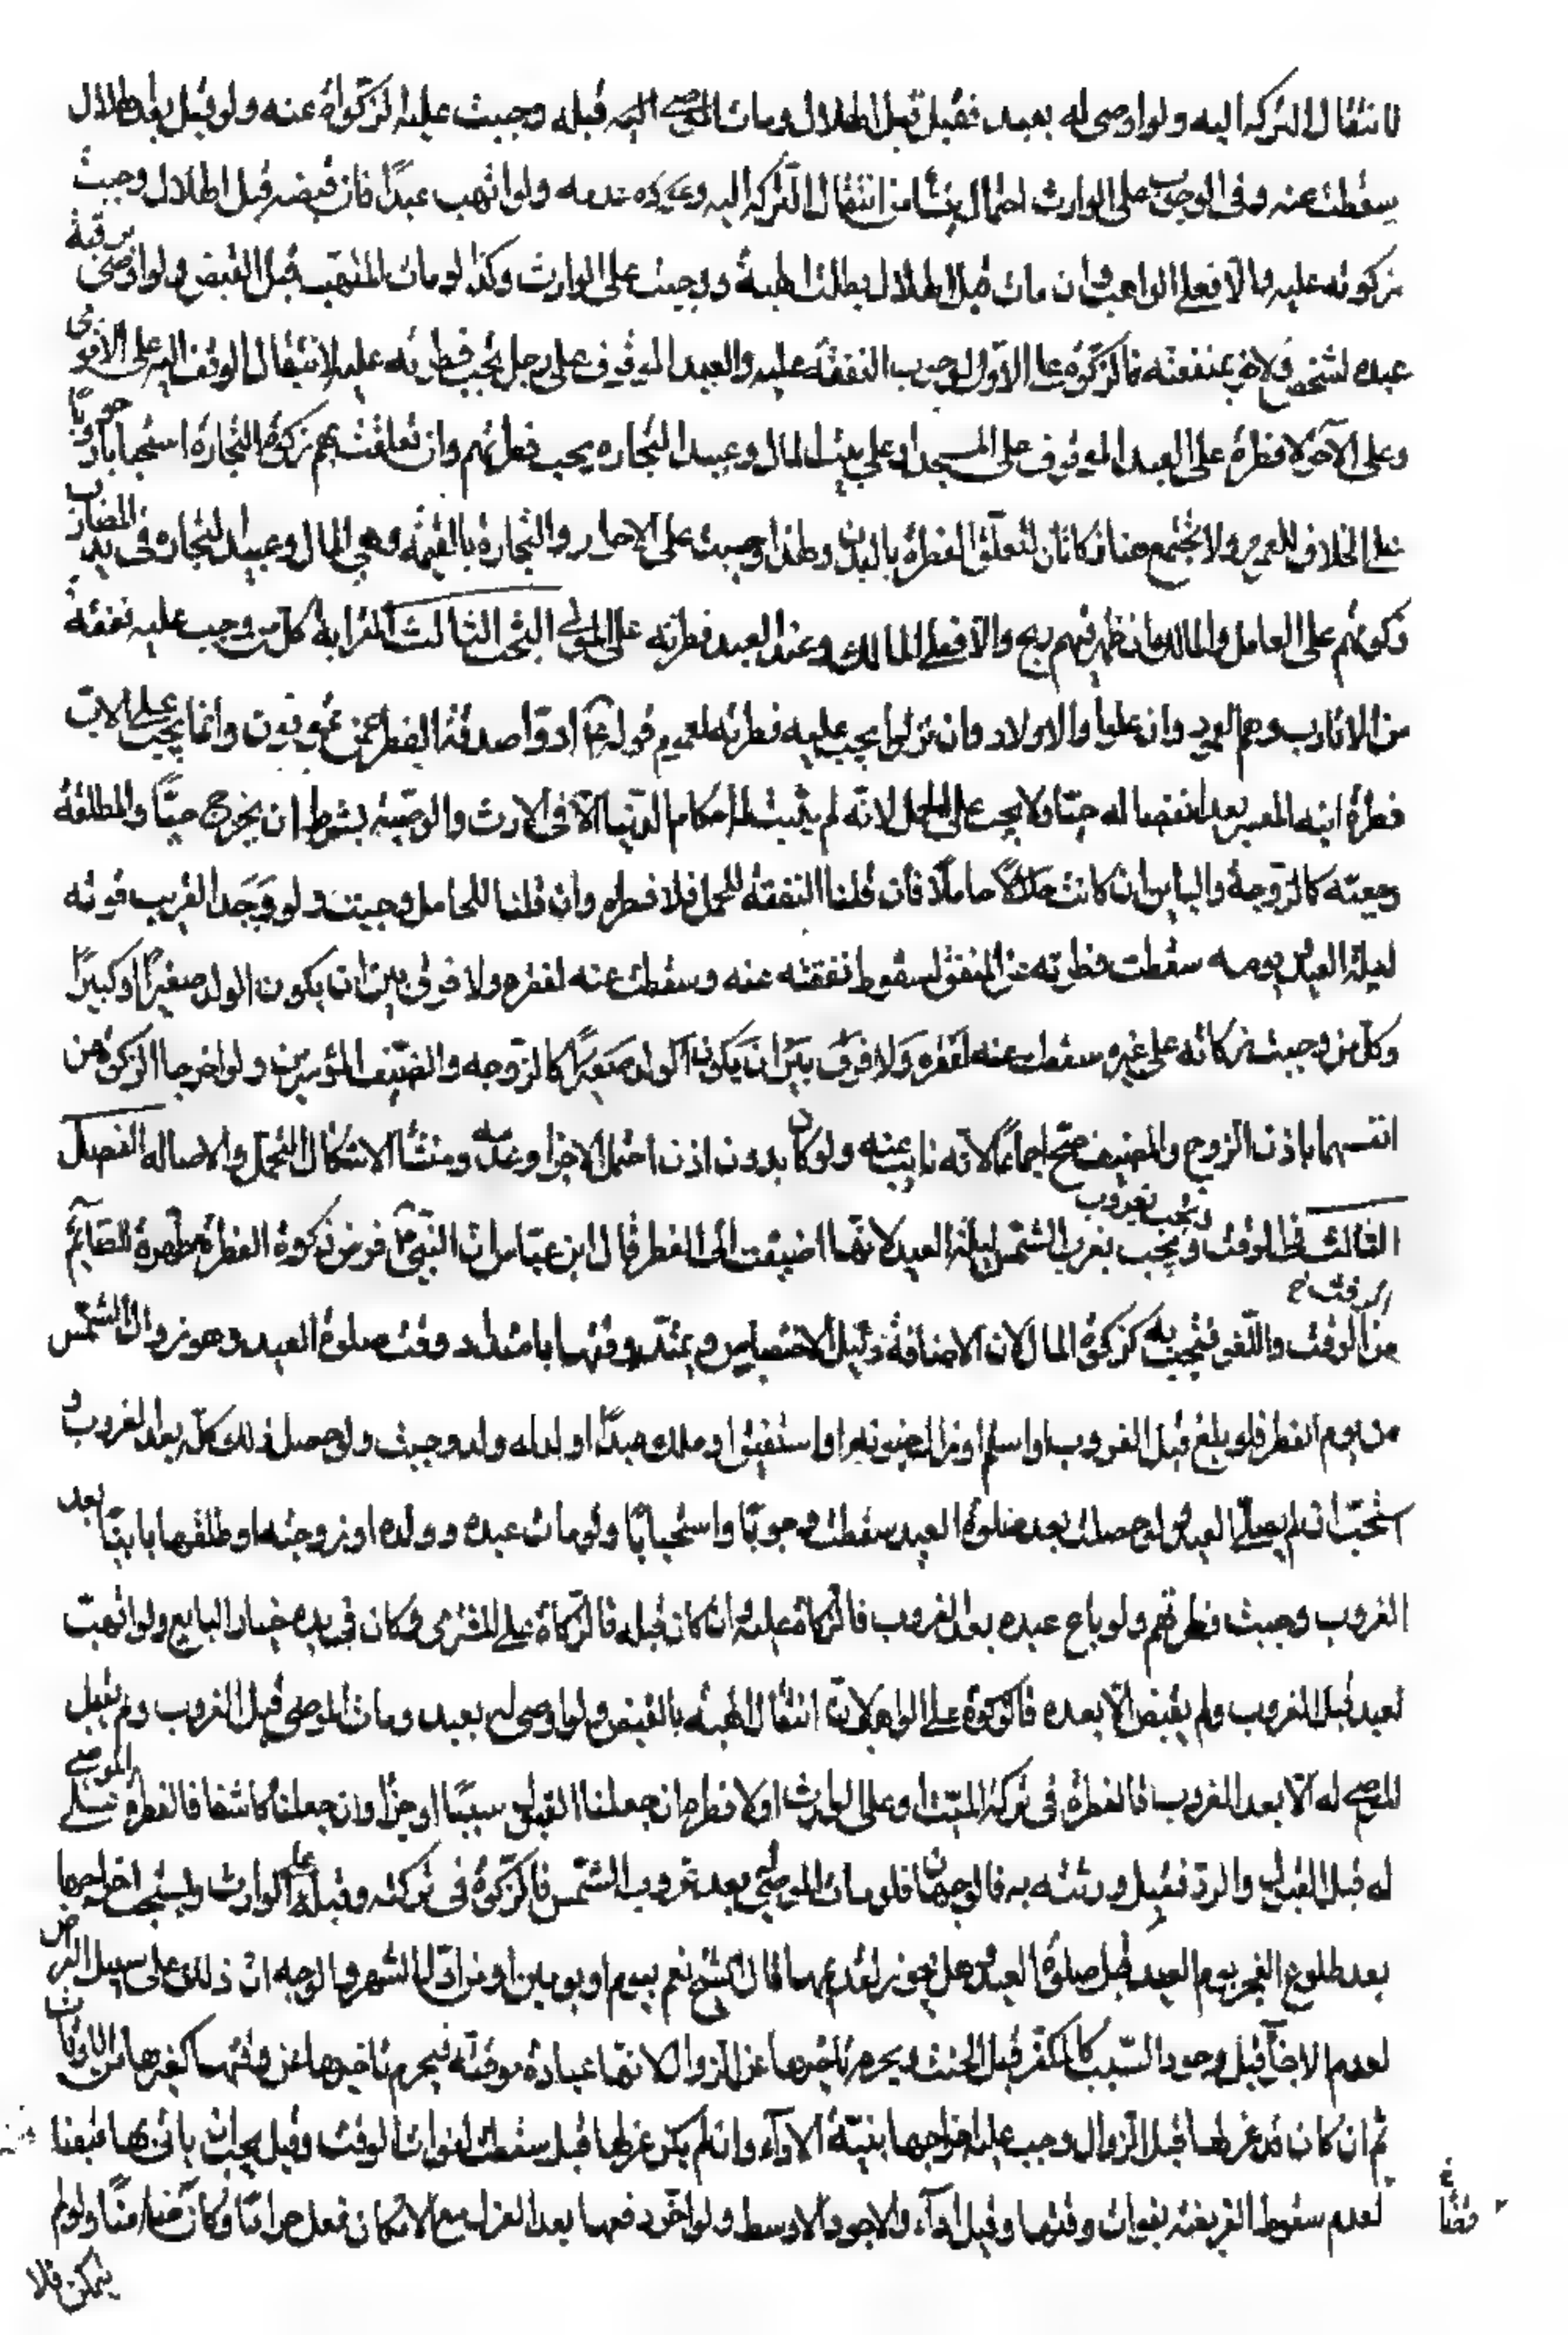 لانتقال التركه اليه ولو اوصى له بعبد فقبل قبل الهلال ومات الموصى اليه قبله وجبت عليه الزكوة عنه ولو قبل بعد الهلال
سقطت عنه وفى الوجوب على الوارث احتمال ينشأ من انتقال التركه اليه وعدمه ولو اتهب عبدًا فان قبضه قبل الهلال وجبت
زكوته عليه والا فعلى الواهب وان مات قبل الهلال بطلت الهبة ووجبت على الوارث وكذا لو مات المتهب قبل القبض ولو اوصى برقبة
عبده لشخص ولاخر بمنفعته فالزكوة على الاول لوجوب النفقة عليه والعبد الموقوف على رجل يجب فطرته عليه لانتقال الوقف اليه على الاقوى
وعلى الاخر لا فطرة على العبد الموقوف على المسجد او على بيت المال وعبيد التجاره يجب فطرتهم وان تعلقت بهم زكوة التجارة استحبابا او وجوبًا
على الخلاف للعموم ولا يجتمع هنا زكاتان لتعلق الفطرة بالبدن ولهذا وجبت على الاحرار والتجارة بالقيمة وهى المال وعبيد التجارة فى يد المضارب
زكوتهم على العامل والمالك ان ظهر فيهم ربح والا فعلى المالك وعند العبد فطرته على المولى البحث الثالث القرابة كل من وجب عليه نفقة
من الاقارب وهم العمود وان علوا والاولاد وان نزلوا يجب عليه فطرته لعموم قوله ع ادوا صدقة الفطر عمن تمونون وانما يجب على الاب
فطرة ابنه المعسر بعد انفصاله حيّا ولا يجب على الحمل لانه لم يثبت له احكام الدنيا الا فى الارث والوصية بشرط ان يخرج حيّا والمطلقة
رجعية كالزوجة والباين ان كانت حاملًا فان قلنا النفقة للحمل فلا فطرة وان قلنا للحامل وجبت ولو وجد القريب قوته
ليلة العيد ويومه سقطت فطرته عن المنفق لسقوط نفقته عنه وسقطت عنه لفقره ولا فرق بين ان يكون الولد صغيرًا او كبيرًا
وكل من وجبت زكاته على غيره سقطت عنه لفقره ولا فرق بين ان يكون الولد صغيرًا كالزوجه والضيف الموسرين ولو اخرجا الزكوة عن
انفسهما باذن الزوج والمضيف صح اجماعًا لانه نايب عنه ولو كان بدون اذن احتمل الاجزا وعدمه ومنشأ الاشكال التحمل والاصاله الفصل
الثالث فى الوقت وتجب بغروب الشمس ليلة العيد لانها اضيفت الى الفطر قال ابن عباس ان النبى ص فرض زكوة الفطرة مطهرة للصائم
من الرفث واللغو فتجب به كزكوة المال لان الاضافة دليل الاختصاص ويمتد وقتها بامتداد وقت صلوة العيد وهو زوال الشمس
من يوم الفطر فلو بلغ قبل الغروب او اسلم او زال جنونه او استغنى او ملك عبدًا او ولد له ولد وجبت ولو حصل ذلك كله بعد الغروب و
استحب ان لم يصلى العيد ولو حصلت بعد صلوة العيد سقطت وجوبًا واستحبابًا ولو مات عبده وولده او زوجته او طلقها باينًا بعد
الغروب وجبت فطرتهم ولو باع عبده بعد الغروب فالزكاة عليه وان كان قبله فالزكاة على المشترى وكان فى يده خيار البايع ولو اتهب
لعبد قبل الغروب ولم يقبض الا بعده فالزكوة على الواهب لان انتقال الهبه بالقبض ولو اوصى له بعبد ومات الموصى قبل الغروب ولم يقبل
الموصى له الا بعد الغروب فالفطرة فى تركة الميت او على الوارث او لا فطره ان جعلنا القبول سببًا او جزءا وان جعلنا كاشفا فالفطرة على الموصى
له قبل القبول والرد فقبل ورثته به فالوجهان فلو مات الموصى بعد غروب الشمس فالزكوة فى تركته وقيل على الوارث ويستحب اخراجها
بعد طلوع الفجر يوم العيد قبل صلوة العيد وهل يجوز تقديمها قال الشيخ نعم بيوم او يومين او من اول الشهر والوجه ان ذلك على سبيل القرض
لعدم الاجزاء قبل وجود السبب كالمكفر قبل الحنث ويحرم تاخيرها عن الزوال لانها عبادة موقتة فيحرم تاخيرها عن وقتها كغيرها من الموقتات
ثم ان كان قد عزلها قبل الزوال وجب عليه اخراجها بنية الاداء وان لم يكن عزلها قيل سقطت لفوات الوقت وقيل يجب ان ياتى بها
لعدم سقوط الفريضة بفوات وقتها وقيل اداء والاجود الاوسط ولو اخر دفعها بعد العزل مع الامكان فعل حرامًا وكان ضامنًا ولو لم
يتمكن فلا
قضاءً